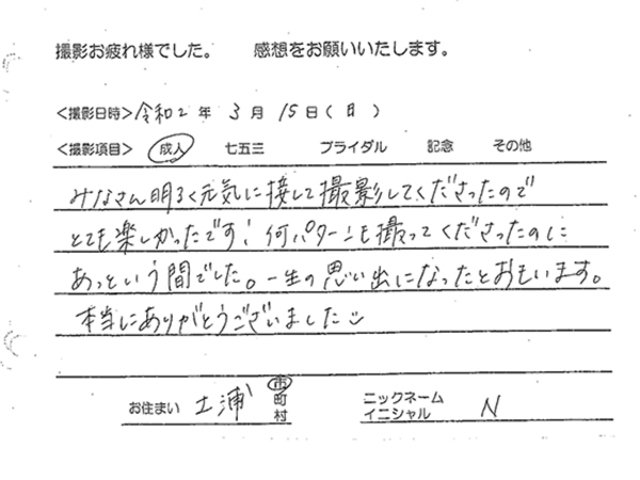 撮影お疲れ様でした。 感想をお願いいたします。
<撮影日時>令和2年3月15日(日)
<撮影項目> 成人 七五三 ブライダル 記念 その他
みなさん明るく元気に接して撮影してくださったので
とても楽しかったです! 何パターンも撮ってくださったのに
あっという間でした。一生の思い出になったとおもいます。
本当にありがとうございました
お住まい 土浦 市町村 ニックネーム イニシャル N